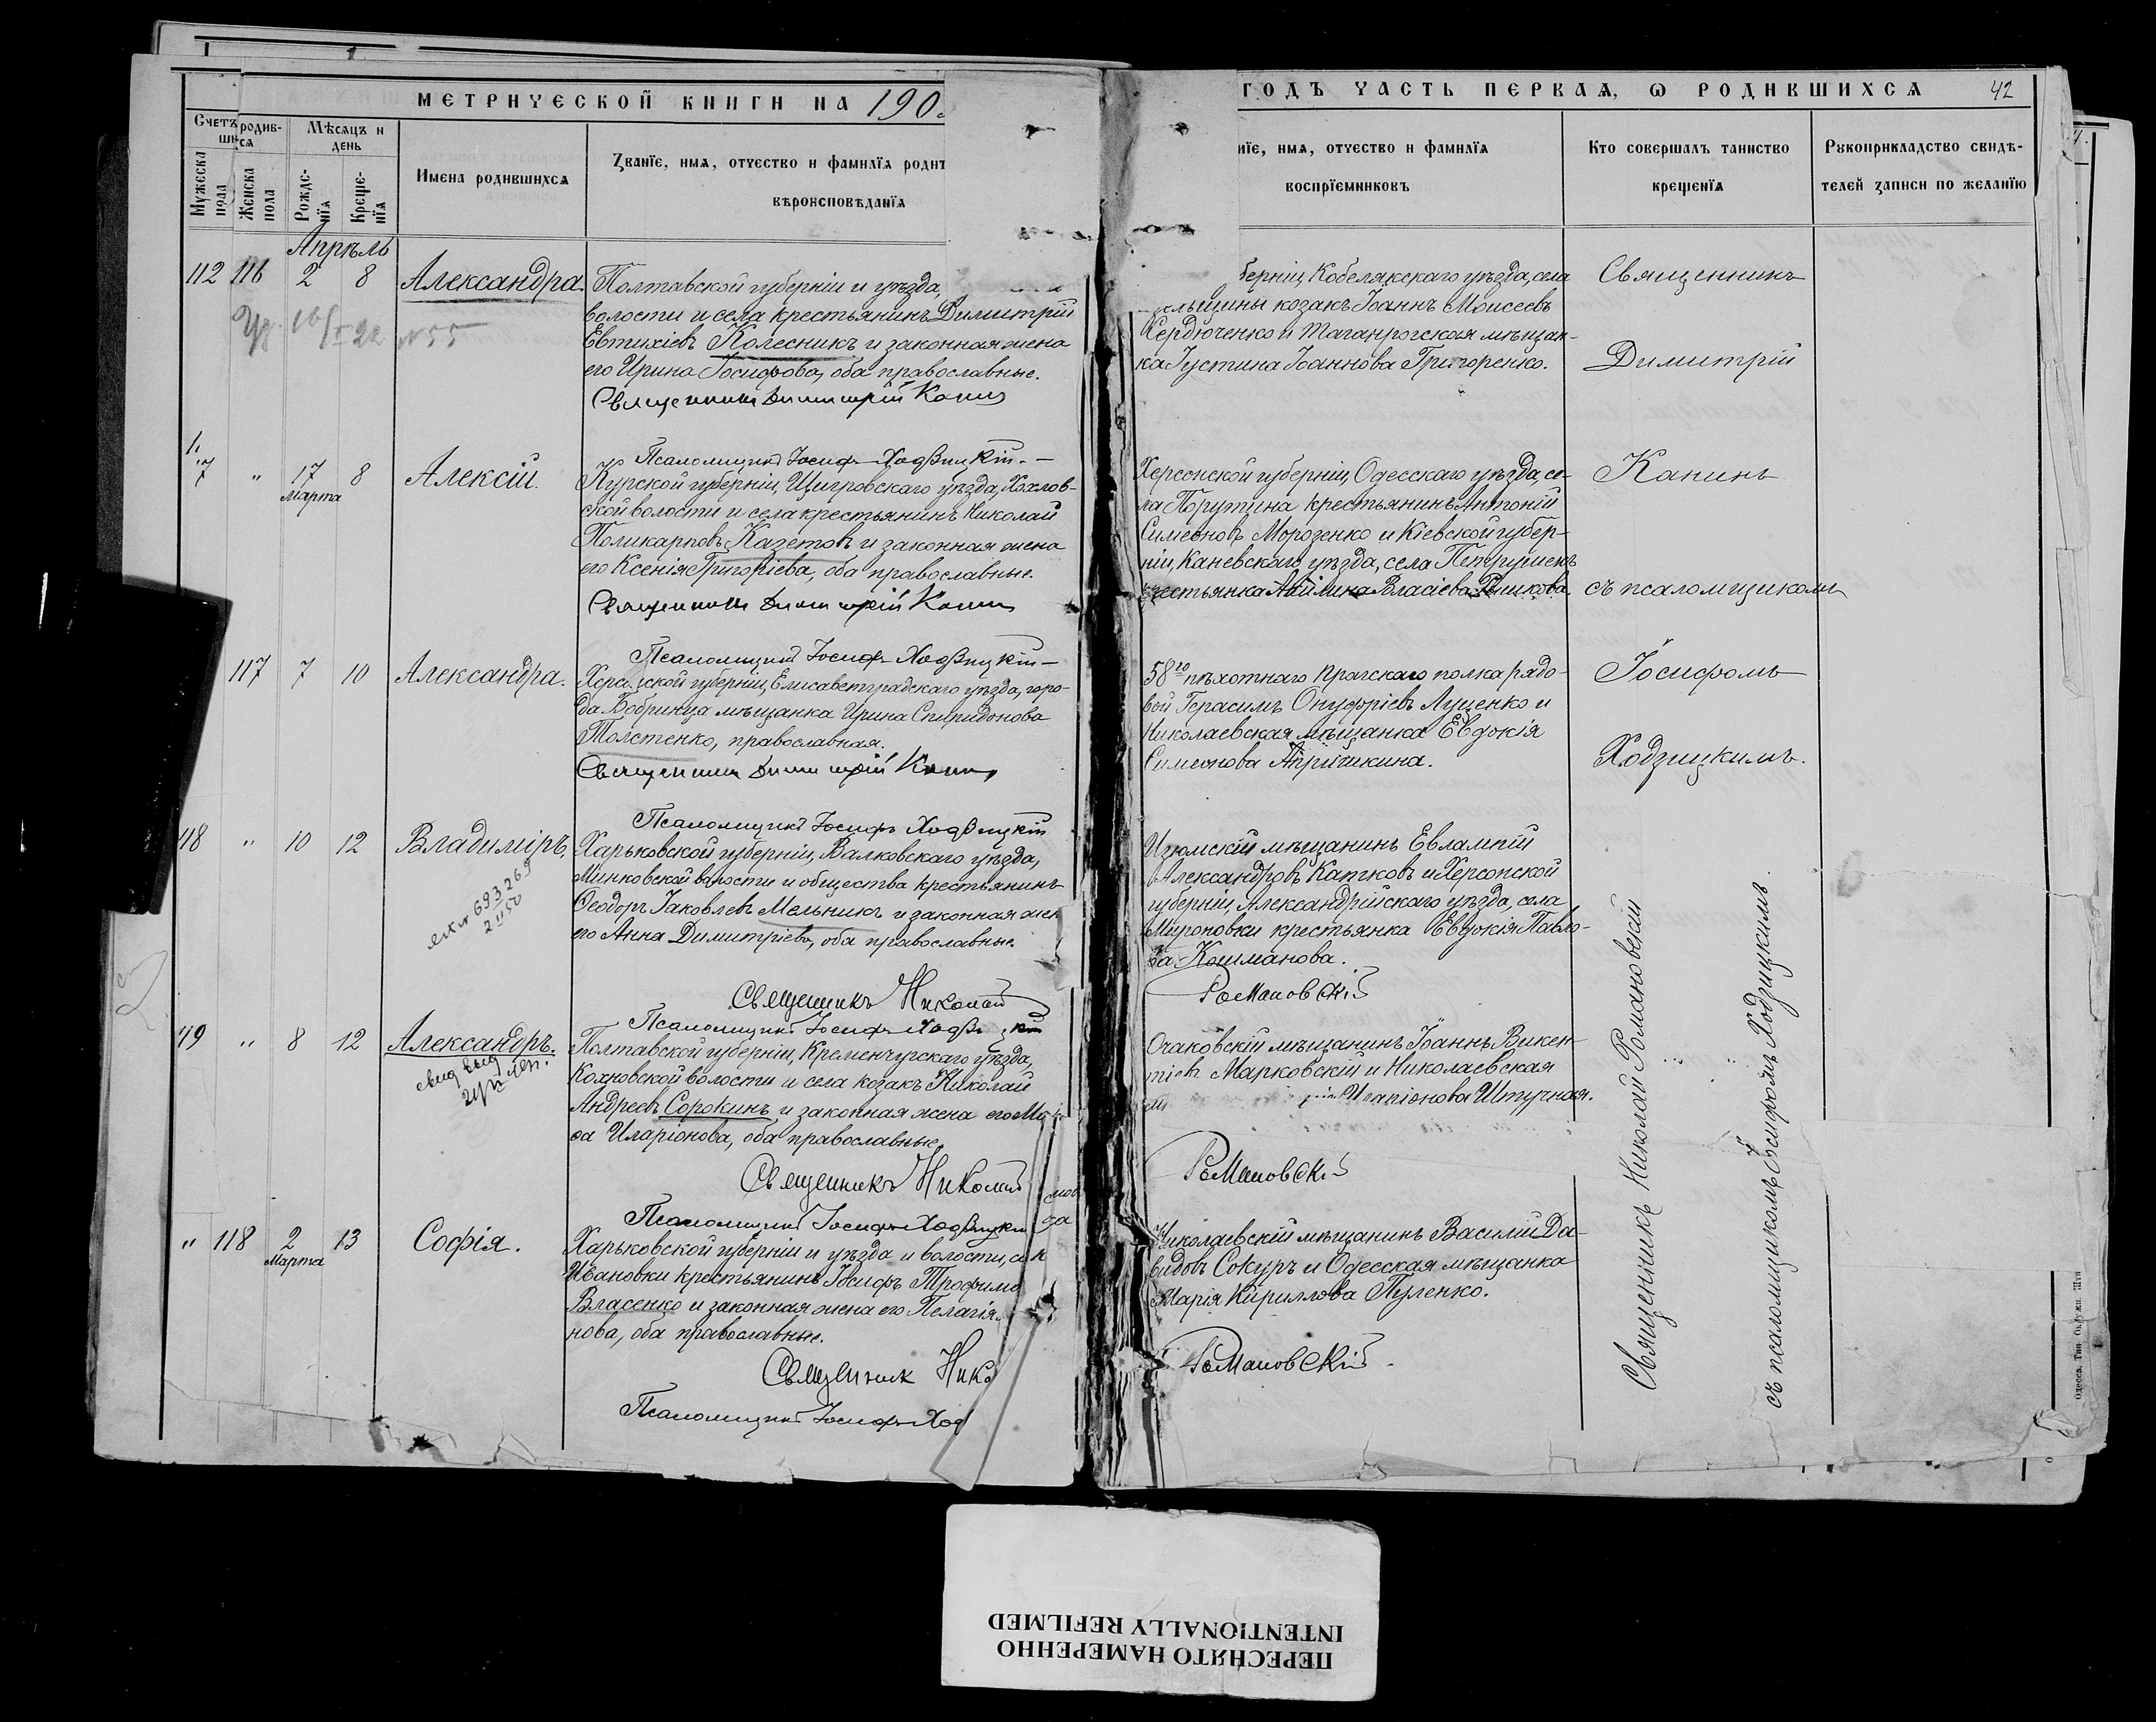 МЕТРИЧЕСКОЙ КНИГИ НА 190
ГОДЪ ЧАСТЬ ПЕРВАЯ, Ѡ РОДИВШИХСЯ 42
Счетъ родив-
шихся
Мужеска
пола
Женска
пола
Мѣсяцъ и
день
Рожде-
нїя
Креще-
нїя
Имена родившихся
Званїе, имя, отчество и фамилїя родит
вѣроисповѣданїя
нїе, имя, отчество и фамилїя
воспрїемниковъ
Кто совершалъ таинство
крещенїя
Рукоприкладство свидѣ-
телей записи по желанїю
Апрѣль
112 116 2 8 Александра.
№55
Полтавской губерніи и уѣзда,
волости и села крестьянинъ Димитрій
Евтихіевъ Колесникъ и законная жена
его Ирина Іосифова, оба православные.
Священникъ Димитрій Канинъ
Псаломщикъ Іосифъ Ходзицкій
берніи, Кобелякскаго уѣзда, села
козакъ Іоаннъ Моисеевъ
Кердюченко и Таганрогская мѣщан-
ка Іустина Іоаннова Григоренко.
7 " 17 8 Алексій.
Марта
Курской губерніи, Щигровскаго уѣзда, Хохлов-
ской волости и села крестьянинъ Николай
Поликарповъ Казетовъ и законная жена
его Ксенія Григоріева, оба православные.
Священникъ Димитрій Канинъ
Псаломщикъ Іосифъ Ходзицкій
Херсонской губерніи, Одесскаго уѣзда, се-
ла Порутина крестьянинъ Антоній
Симеоновъ Морозенко и Кіевской губер-
ніи, Каневскаго уѣзда, села Петрушекъ
крестьянка Власіева
117 7 10 Александра.
Херсонской губерніи, Елисаветградскаго уѣзда, горо-
да Бобринца мѣщанка Ирина Спиридонова
Толстенко, православная.
Священникъ Димитрій Канинъ
Псаломщикъ Іосифъ Ходзицкій
58го пѣхотнаго Прагскаго полка рядо-
вой Герасимъ Онуфріевъ Луценко и
Николаевская мѣщанка Евдокія
Симеонова
Священникъ
Димитрій
Канинъ
съ псаломщикомъ
Іосифомъ
Ходзицкимъ.
118 " 10 12 Владиміръ.
693269
2 II 50
Харьковской губерніи, Валковскаго уѣзда,
Минковской волости и общества крестьянинъ
Ѳеодоръ Іаковлевъ Мельникъ и законная жен
его Анна Димитріева, оба православные.
Священникъ Николай
Псаломщикъ Іосифъ Ходзицкій
Изюмскій мѣщанинъ Евлампій
Александровъ Капковъ и Херсонской
губерніи, Александрійскаго уѣзда, села
Мироновки крестьянка Евдокія Павло-
ва Кошманова.
Романовскій
119 " 8 12 Александръ.
Полтавской губерніи, Кременчугскаго уѣзда,
Кохновской волости и села козакъ Николай
Андреевъ Сорокинъ и законная жена его Мар
ѳа Иларіонова, оба православные.
Священникъ Николай
Псаломщикъ Іосифъ Ходзицкій
Очаковскій мѣщанинъ Іоаннъ Викен-
тіевъ Марковскій и Николаевская
Иларіонова Штучная.
Романовскій
" 118 2 13 Софія.
Марта
Харьковской губерніи и уѣзда и волости, сел
Ивановки крестьянинъ Іосифъ Трофимо
Власенко и законная жена его Пелагія
нова, оба православные.
Священник Нико
Псаломщикъ Іосифъ Ход
Николаевскій мѣщанинъ Василій Да-
видовъ Сокуръ и Одесская мѣщанка
Марія Кириллова Пуленко.
Романовскій
Священникъ Николай Романовскій
съ псаломщикомъ Іосифомъ Ходзицкимъ.
Одесса. Тип. Окружн. Шта
ПЕРЕСНЯТО НАМЕРЕННО
INTENTIONALLY REFILMED